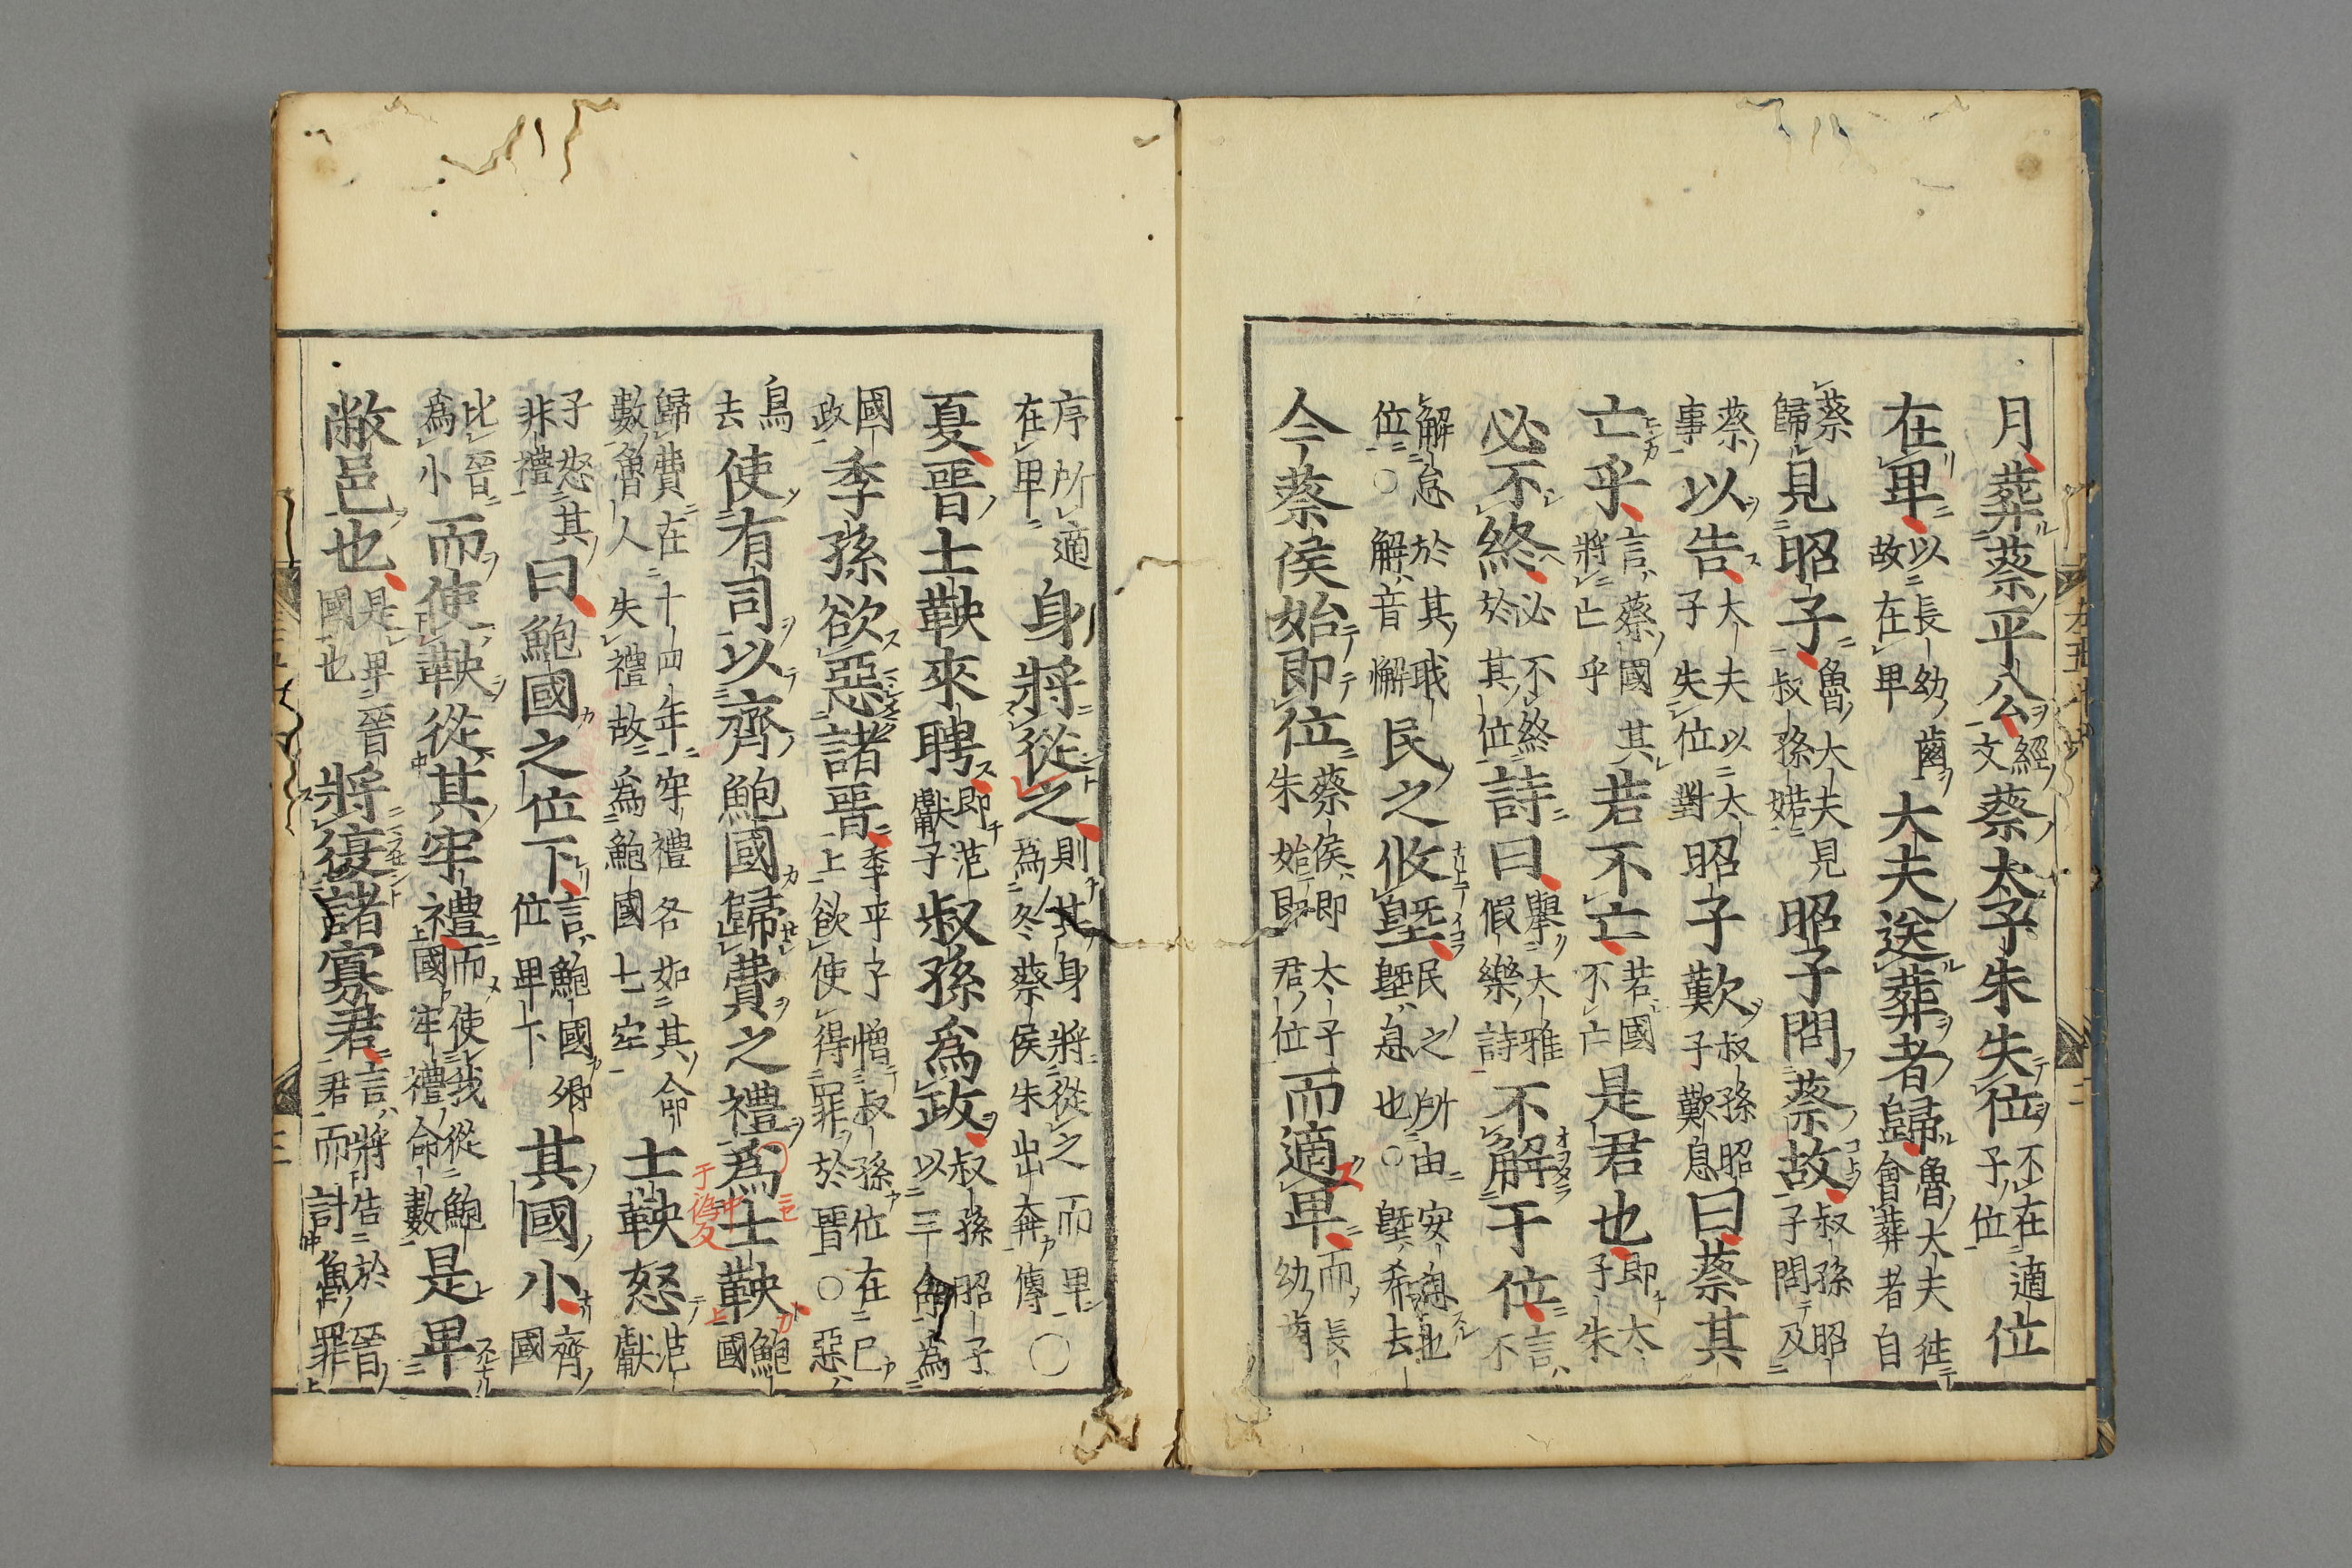 月葬蔡平公經文蔡太子朱失位不在適子位位
在卑以長幼齒故在卑大夫送葬者歸魯大夫徃會葬者自
蔡歸見昭子魯大夫叔孫婼見昭子問蔡故叔孫昭子問及
蔡事以告大夫以太子失位對昭子歎叔孫昭子歎息曰蔡其
亡乎言蔡國其將亡乎若不亡若國不亡是君也即太子朱
必不終必不終於其位詩曰擧大雅假樂詩不解于位言不
解怠於其職位○解音懈民之攸塈民之所由安息也塈息也○塈希去
今蔡侯始即位蔡侯即太子朱始即君位而適卑而長幼齒
序所適在卑身將從之則其身將從之而卑爲冬蔡侯朱出奔傳○
夏晉士鞅來聘即范獻子叔孫爲政叔孫昭子以三命爲
國政季孫欲惡諸晉季平子憎叔孫位在已上欲使得罪於晉○惡
烏去使有司以齊鮑國歸費之禮爲士鞅鮑國
歸費在十四年牢禮各如其命數魯人失禮故爲鮑國七牢士鞅怒范獻
子怒其非禮曰鮑國之位下言鮑國卿位卑下其國小齊國
比晉爲小而使鞅從其牢禮而使我從鮑國牢禮命數是卑
敝邑也是卑晉國也將復諸寡君言將告於晉君而討魯罪